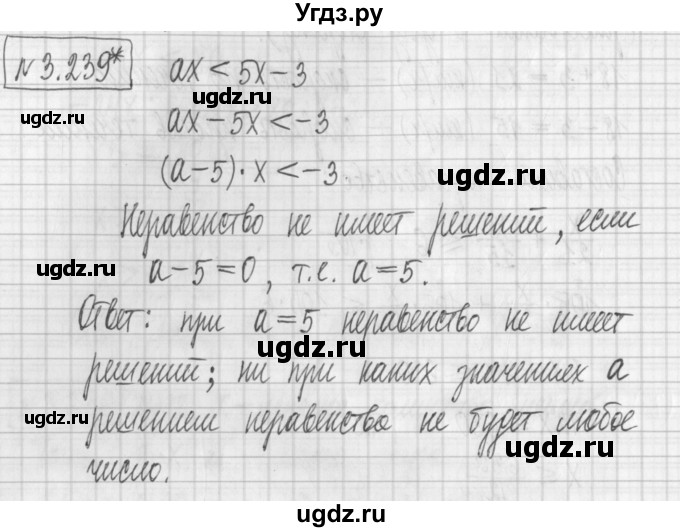 Угдз.ру
№3.239* ax < 5x − 3
ugdz.ru
ax − 5x < −3
ugdz.ru
(a − 5) · x < −3
ugdz.ru
Неравенство не имеет решений, если
ugdz.ru a − 5 = 0, т.е. a = 5.
Ответ: при a = 5 неравенство не имеет
ugdz.ru
решений; ни при каких значениях a
ugdz.ru решением неравенства не будет любое
ugdz.ru
число.
ugdz.ru